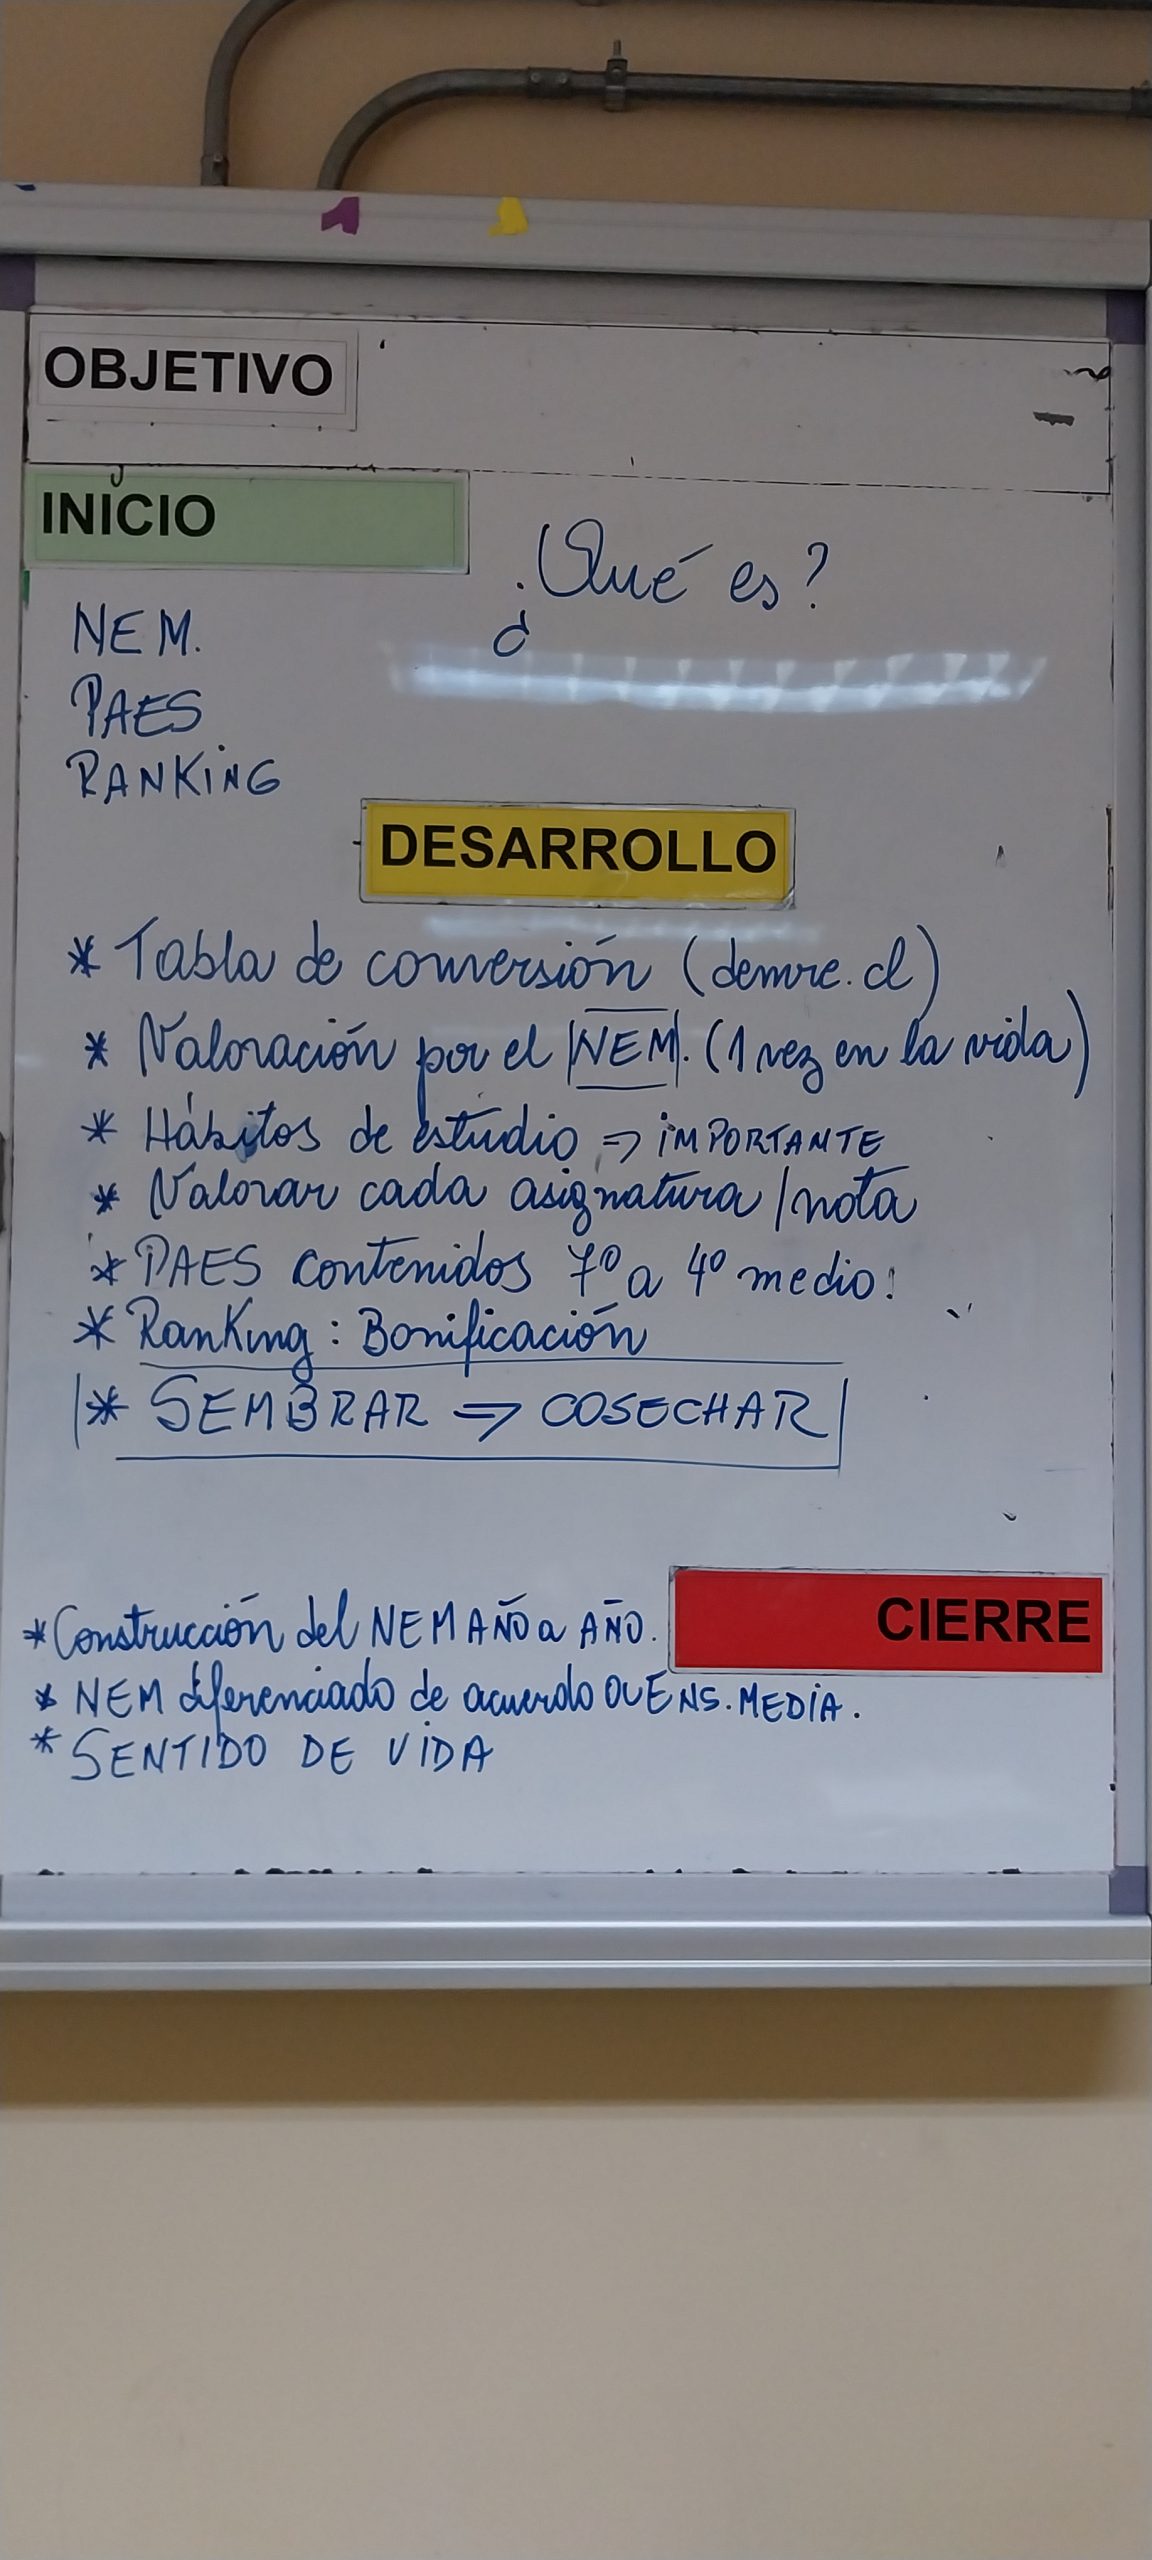 OBJETIVO
INICIO
¿Qué es?
NEM.
PAES
RANKING
DESARROLLO
* Tabla de conversión (demre.cl)
* Valoración por el |NEM|. (1 vez en la vida)
* Hábitos de estudio => iMPORTANTE
* Valorar cada asignatura/nota
* PAES contenidos 7º a 4º medio.
* Ranking: Bonificación
* SEMBRAR => COSECHAR
CIERRE
* Construcción del NEM AÑO a AÑO.
* NEM diferenciado de acuerdo ENS. MEDIA.
* SENTIDO DE VIDA